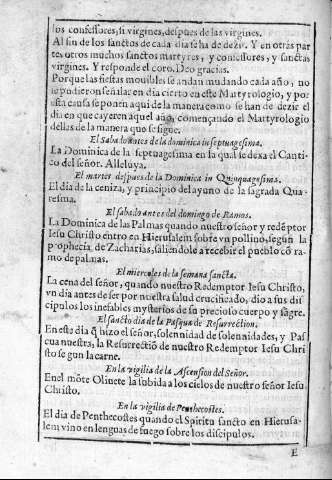 los confessores, si virgines, despues de las virgines.
Al fin de los sanctos de cada dia se ha de dezir. Y en otras par
tes otros muchos sanctos martyres, y confessores, y sanctas
virgines. Y responde el coro. Deo gracias.
Porque las fiestas mouibles se andan mudando cada año, no
se pudieron señalar en dia cierto en este Martyrologio, y por
esta causa se ponen aqui de la manera como se han de dezir el
dia en que cayeren aquel año, començando el Martyrologio
dellas de la manera que se sigue.
El Sabado antes de la dominica in septuagesima.
La Dominica de la septuagesima en la qual se dexa el Canti
co del señor. Alleluya.
El martes despues de la Dominica in Quinquagesima.
El dia de la ceniza, y principio del ayuno de la sagrada Qua-
resma.
El sabado antes del domingo de Ramos.
La Dominica de las Palmas quando nuestro señor y redẽptor
Iesu Christo entro en Hierusalem sobre vn pollino, segun la
prophecia de Zacharias, saliendole a recebir el pueblo cõ ra-
mo de palmas.
El miercoles de la semana sancta.
La cena del señor, quando nuestro Redemptor Iesu Christo,
vn dia antes de ser por nuestra salud crucificado, dio a sus dis
cipulos los inefables mysterios de su precioso cuerpo y sãgre.
El sancto dia de la Pasqua de Resurrection.
En este dia q̃ hizo el señor, solennidad de solennidades, y Pas
cua nuestra, la Resurrectiõ de nuestro Redemptor Iesu Chri
sto segun la carne.
En la vigilia de la Ascension del Señor.
En el mõte Oliuete la subida a los cielos de nuestro señor Iesu
Christo.
En la vigilia de Penthecostes.
El dia de Penthecostes quando el Spiritu sancto en Hierusa-
lem vino en lenguas de fuego sobre los discipulos.
E